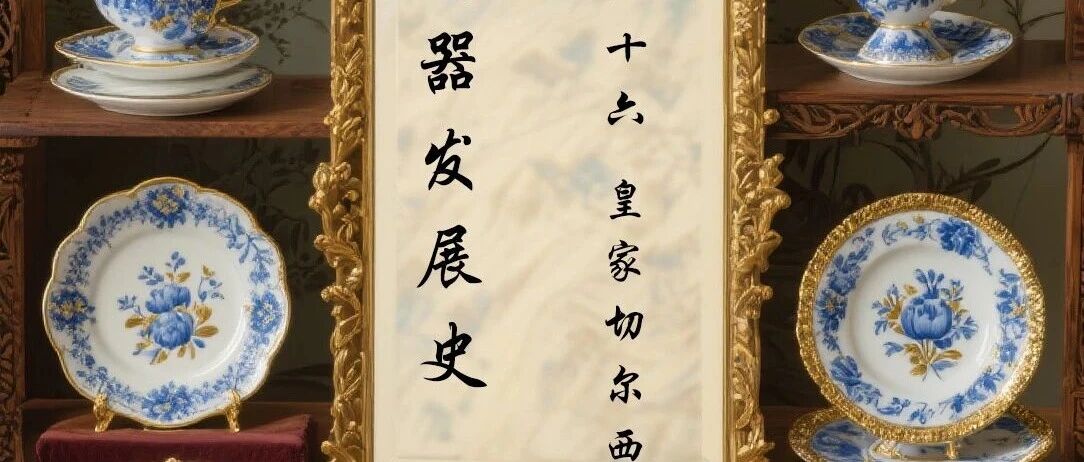 十六 皇家切尔西
器发展史